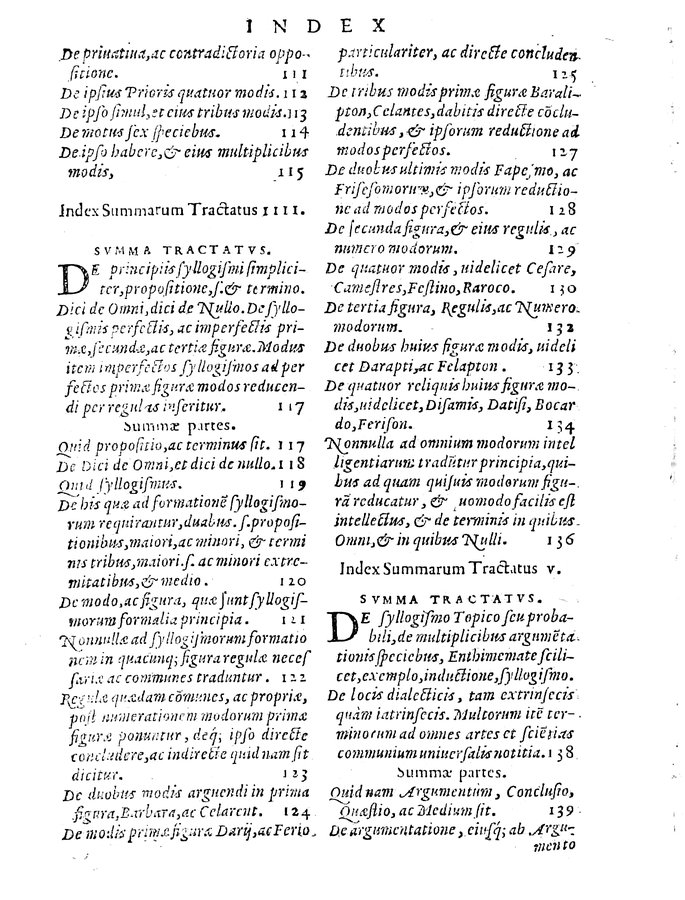 INDEX
De priuatiua, ac contradictoria oppo-
ſitione. 111
De ipſius Prioris quatuor modis. 112
De ipſo ſimul, et eius tribus modis. 113
De motus ſex ſpeciebus. 114
De ipſo habere, & eius multiplicibus
modis, 115
Index Summarum Tractatus IIII.
SVMMA TRACTATVS.
DE principiis ſyllogiſmi ſimplici-
ter, propoſitione, ſ. & termino.
Dici de Omni, dici de Nullo. De ſyllo-
giſmis perfectis, ac imperfectis pri-
mæ, ſecundæ, ac tertiæ figuræ. Modus
item imperfectos ſyllogiſmos ad per
fectos primæ figuræ modos reducen-
di per regulas inſeritur. 117
Summæ partes.
Quid propoſitio, ac terminus ſit. 117
De Dici de Omni, et dici de nullo. 118
Quid ſyllogiſmus. 119
De his quæ ad formationẽ ſyllogiſmo-
rum requirantur, duabus. ſ. propoſi-
tionibus, maiori, ac minori, & termi
nis tribus, maiori. ſ. ac minori extre-
mitatibus, & medio. 120
De modo, ac figura, quæ ſunt ſyllogiſ-
morum formalia principia. 121
Nonnullæ ad ſyllogiſmorum formatio
nem in quacunq; figura regulæ neceſ
ſariæ ac communes traduntur. 122
Regulæ quædam cõmunes, ac propriæ,
poſt numerationem modorum primæ
figuræ ponuntur, deq; ipſo directe
concludere, ac indirecte quid nam ſit
dicitur. 123
De duobus modis arguendi in prima
figura, Barbara, ac Celarent. 124
De modis primæ figuræ Darij, ac Ferio
particulariter, ac directe concluden
tibus. 125
De tribus modis primæ figuræ Barali-
pton, Celantes, dabitis directe cõclu-
dentibus, & ipſorum reductione ad
modos perfectos. 127
De duobus ultimis modis Fapeſmo, ac
Friſeſomorum, & ipſorum reductio-
ne ad modos perfectos. 128
De ſecunda figura, & eius regulis, ac
numero modorum. 129
De quatuor modis, uidelicet Ceſare,
Cameſtres, Feſtino, Baroco. 130
De tertia figura, Regulis, ac Numero
modorum. 132
De duobus huius figuræ modis, uideli
cet Darapti, ac Felapton. 133
De quatuor reliquis huius figuræ mo-
dis, uidelicet, Diſamis, Datiſi, Bocar
do, Feriſon. 134
Nonnulla ad omnium modorum intel
ligentiarum tradũtur principia, qui-
bus ad quam quiſuis modorum figu-
rã reducatur, & uomodo facilis eſt
intellectus, & de terminis in quibus
Omni, & in quibus Nulli. 136
Index Summarum Tractatus V.
SVMMA TRACTATVS.
DE ſyllogiſmo Topico ſeu proba-
bili, de multiplicibus argumẽta-
tionis ſpeciebus, Enthimemate ſcili-
cet, exemplo, inductione, ſyllogiſmo.
De locis dialecticis, tam extrinſecis
quàm iatrinſecis. Multorum itẽ ter-
minorum ad omnes artes et ſciẽtias
communium uniuerſalis notitia. 138
Summæ partes.
Quid nam Argumentum, Concluſio,
Quæſtio, ac Medium ſit. 139
De argumentatione, eiuſq; ab Argu-
mento